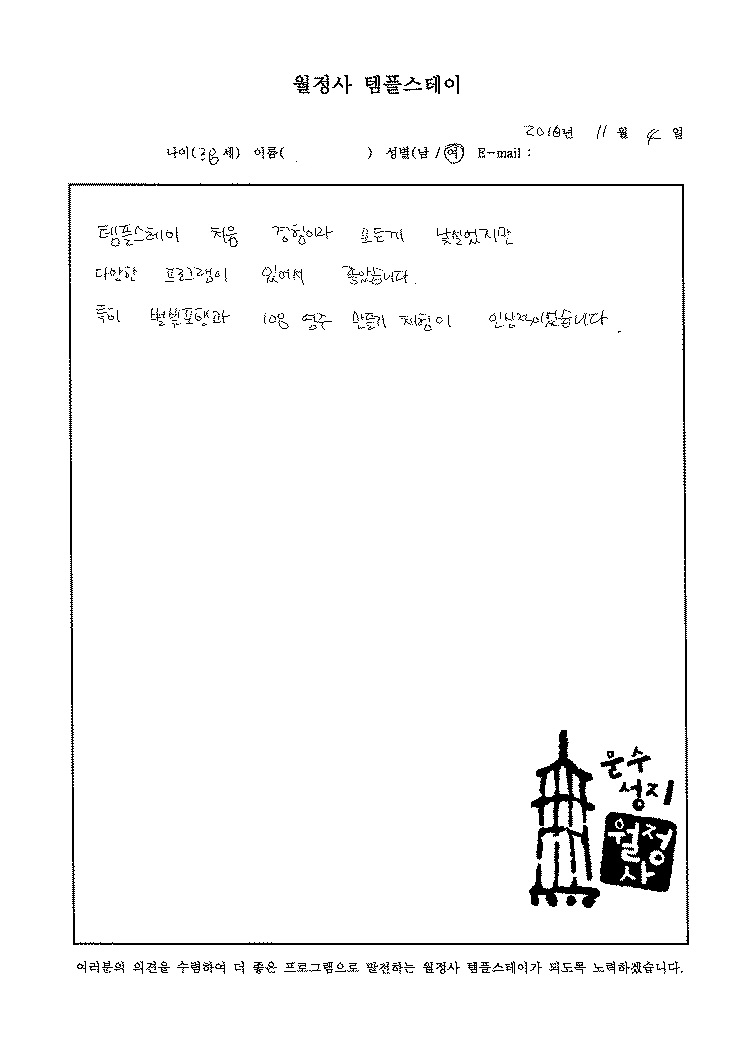 월정사 템플스테이
2018년 11월 4일
나이( 세) 이름( ) 성별(남 / 여) E-mail :
템플스테이 처음 경험이라 모든게 낯설었지만
다양한 프로그램이 있어서 좋았습니다.
특히 108 염주 만들기 체험이 인상적이었습니다.
문수
성지
월정
사
여러분의 의견을 수렴하여 더 좋은 프로그램으로 발전하는 월정사 템플스테이가 되도록 노력하겠습니다.